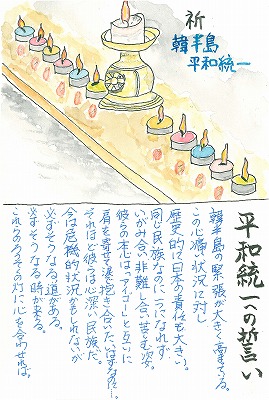 祈
韓半島
平和統一
平和統一への誓い
韓半島の緊張が大きく
この心痛い状況に対し
歴史的に日本の責任も大きい。
同じ民族なのに一つになれず
いがみ合い非難し合い苦しむ姿。
彼らの本心は「アイゴー」と互いに
肩を寄せて涙し抱き合いたいはずなのに…
それほど彼らは心深い民族だ。
今は危機的状況かもしれないが
必ずそうなる道がある。
必ずそうなる時が来る。
これらのろうそくの灯に心を合わせれば。